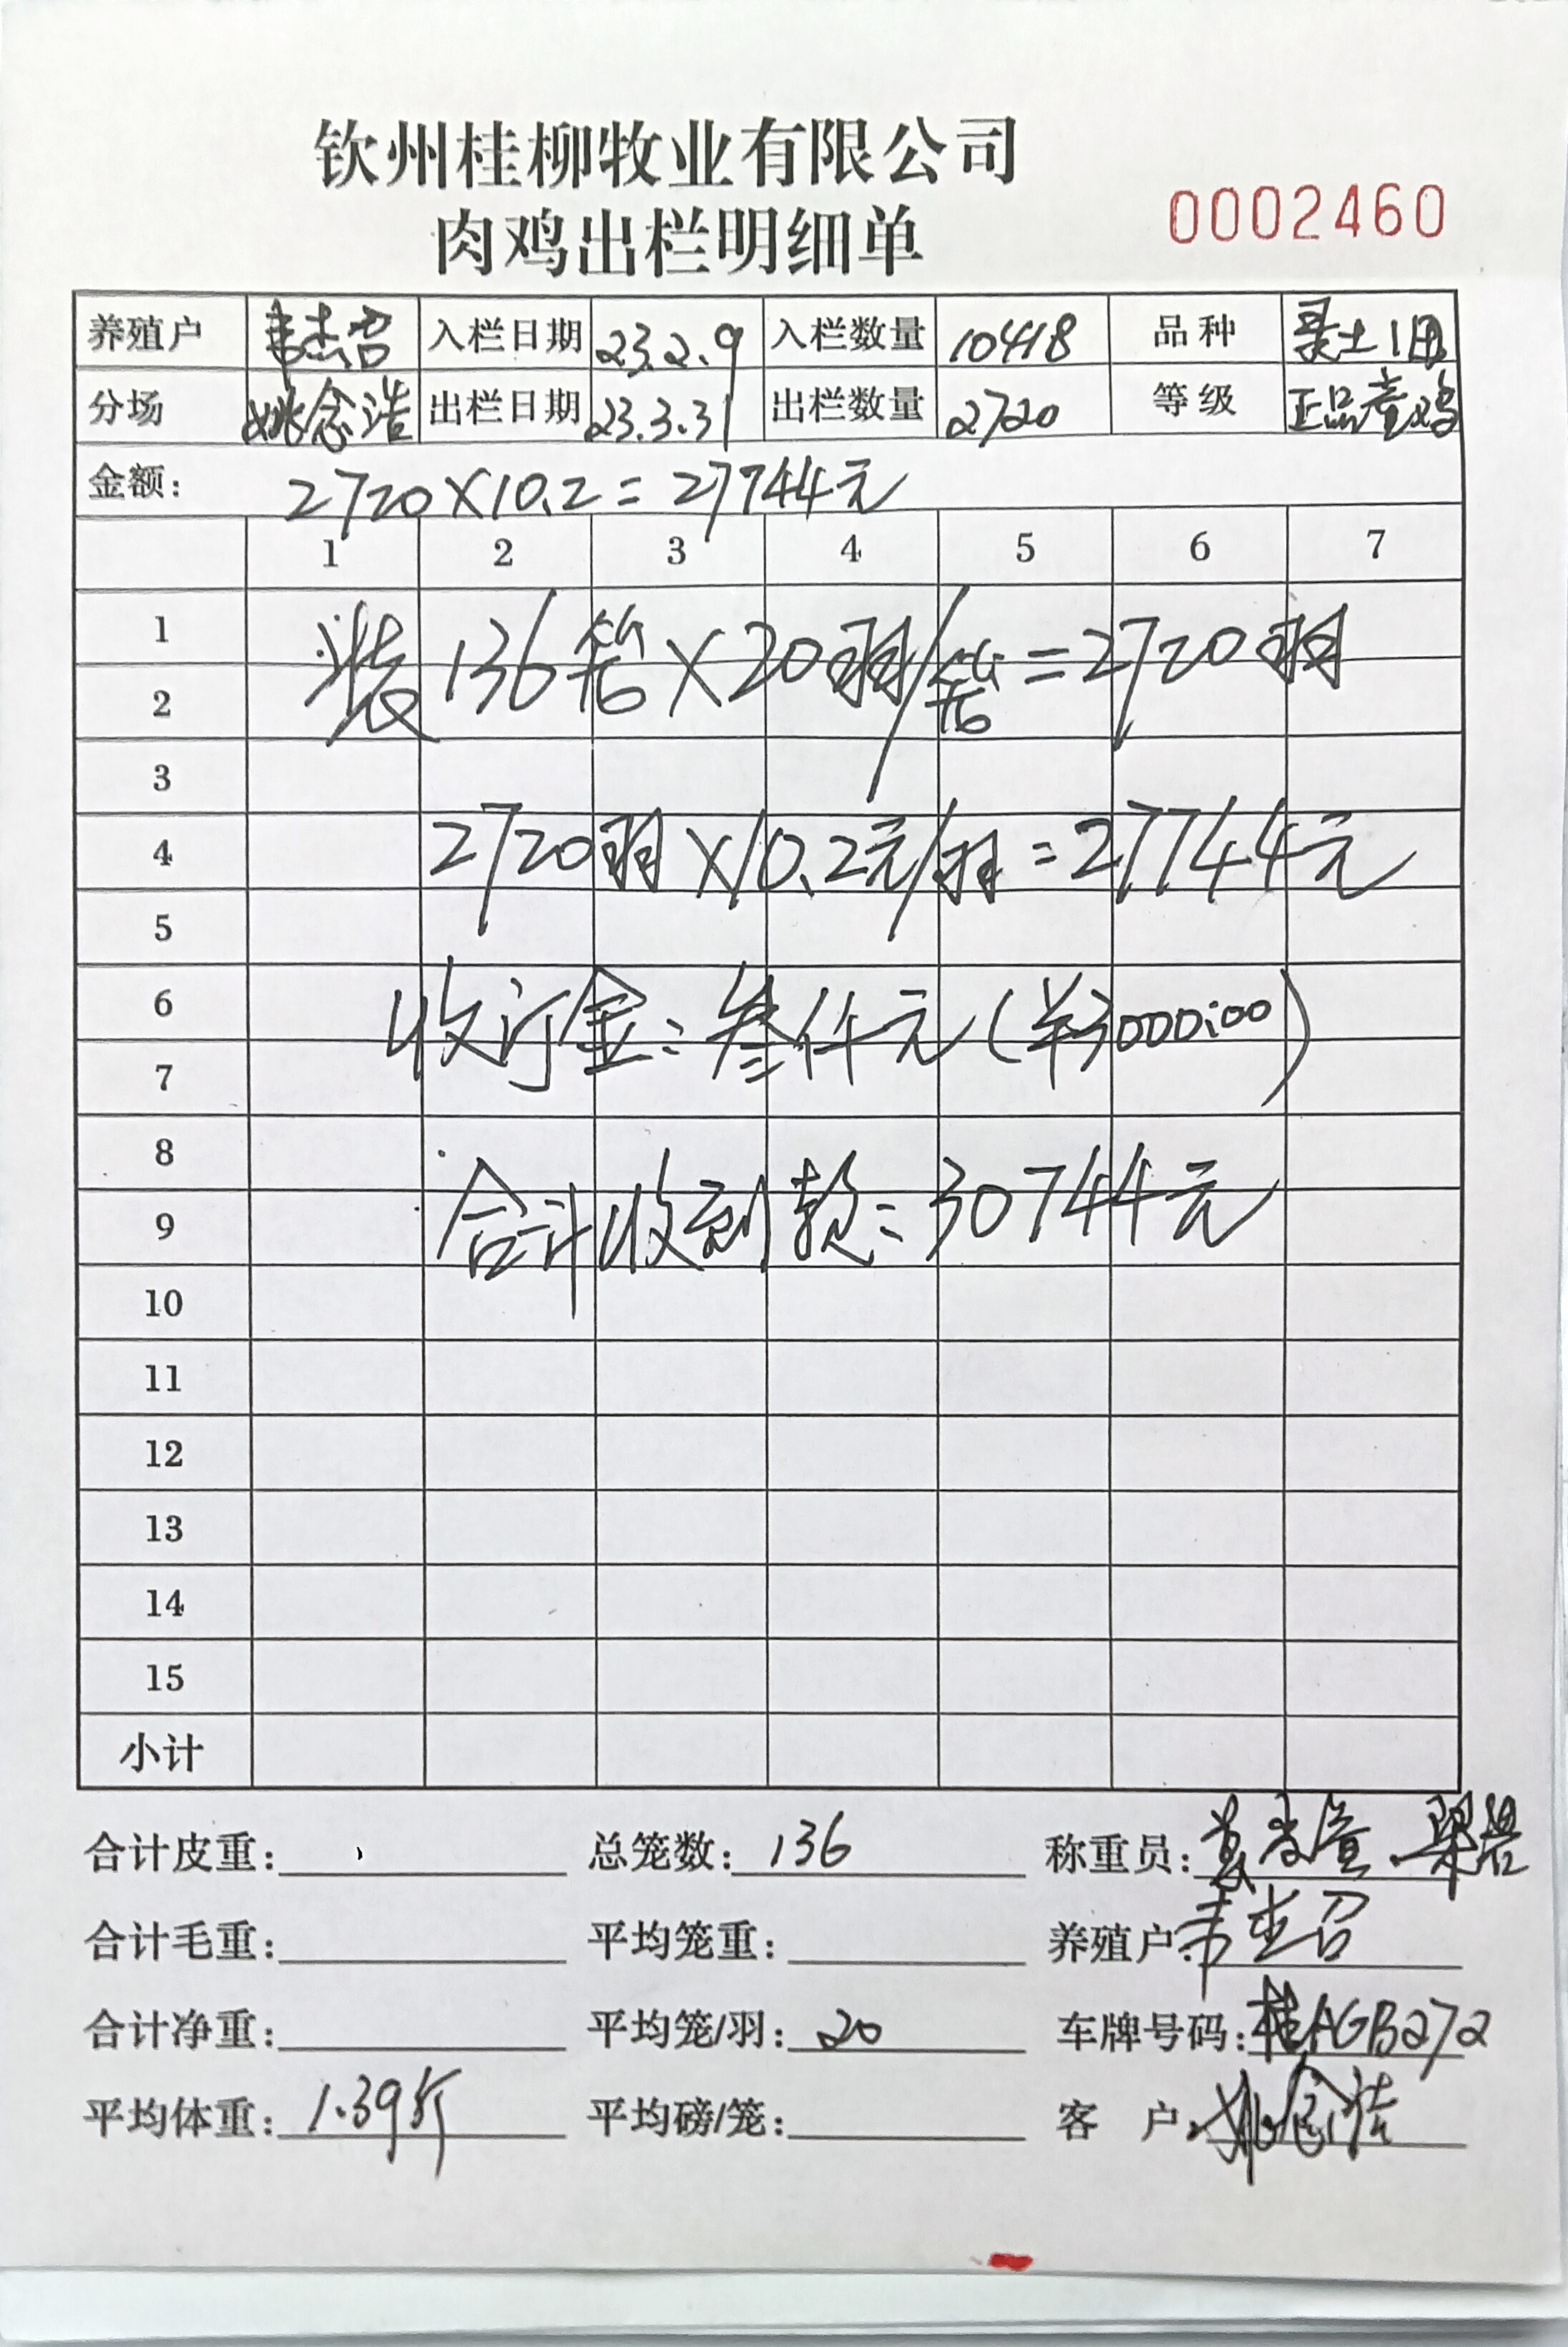 钦州桂柳牧业有限公司
肉鸡出栏明细单
0002460
养殖户 韦杰召 入栏日期 23.2.9 入栏数量 10418 品种 土1母
分场 姚念浩 出栏日期 23.3.31 出栏数量 2720 等级 正品童鸡
金额: 2720×10.2=27744元
1 2 3 4 5 6 7
1
装136笼×20羽/笼=2720羽
2
3
4 2720羽×10.2元/羽=27744元
5
6
收订金:叁仟元(¥3000:00)
7
8
合计收到款:30744元
9
10
11
12
13
14
15
小计
合计皮重: 总笼数: 136 称重员:
合计毛重: 平均笼重: 养殖户: 韦杰召
合计净重: 平均笼/羽: 20 车牌号码: 桂AGB272
平均体重: 1.39斤 平均磅/笼: 客 户: 姚念浩